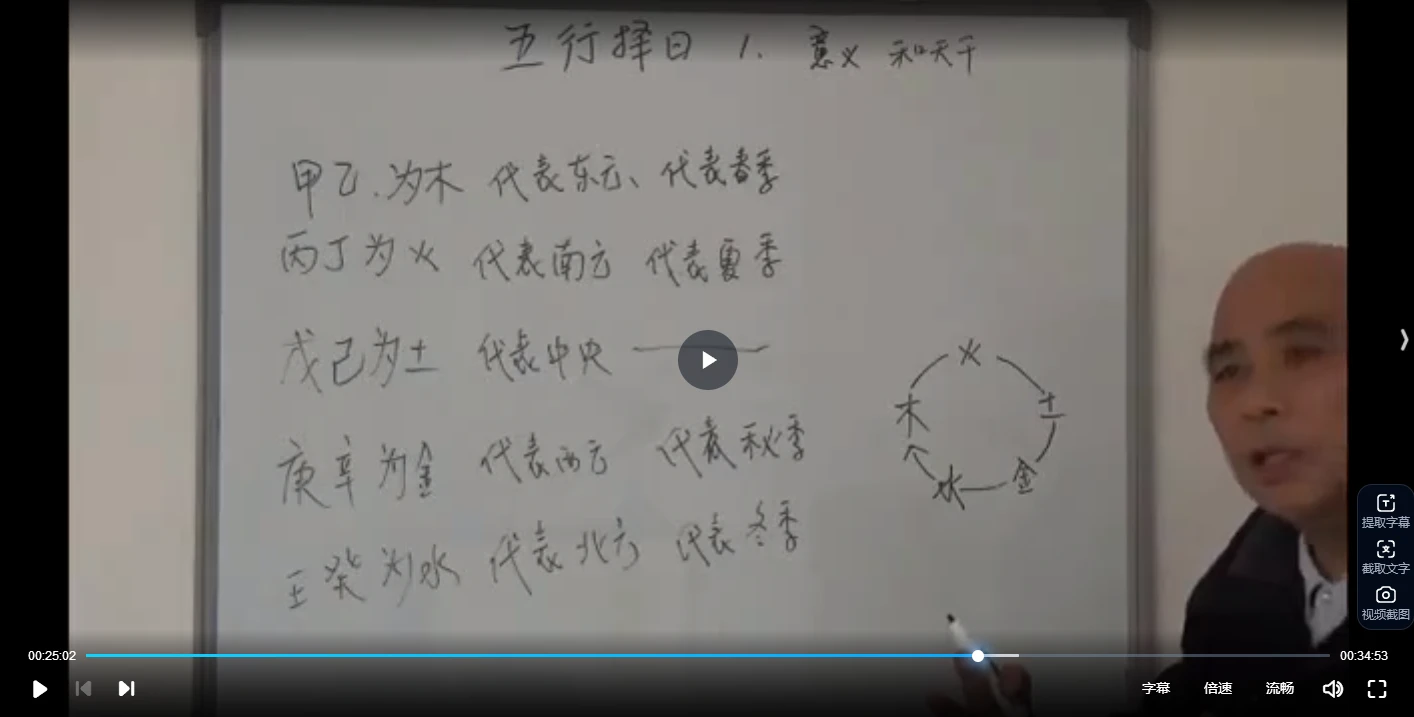 五行择日 1. 意义 和天干
甲乙.为木 代表东方、代表春季
丙丁为火 代表南方 代表夏季
戊己为土 代表中央 ——
火
木 土
水 金
庚辛为金 代表西方 代表秋季
壬癸为水 代表北方 代表冬季
提取字幕
截取文字
视频截图
00:25:02 00:34:53
字幕 倍速 流畅